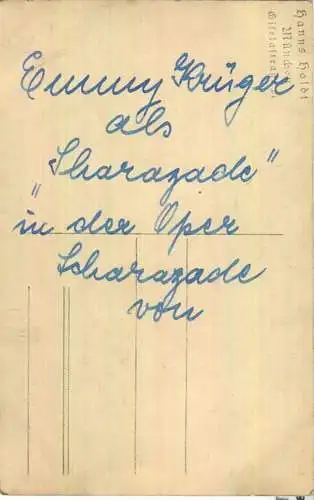 Emmy Krüger
als
"Sharazade"
in der Oper
Scharazade
von
Hanns Holdt
München